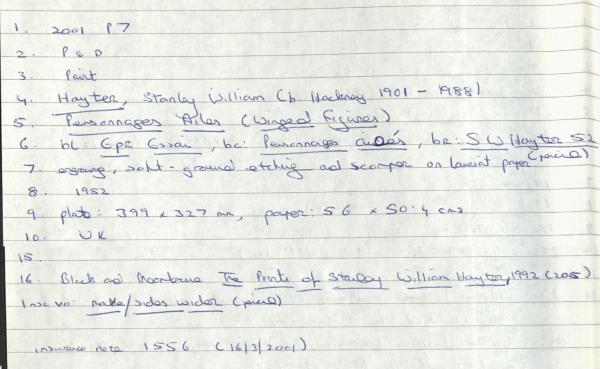 1. 2001 P7
2. P & D
3. Print
4. Hayter, Stanley William (b. Hackney 1901 - 1988)
5. Personnages Ailes (Winged Figures)
6. bl: EpR Essai, bc: Personnages ailés, br: S W Hayter 52 (pencil)
7. engraving, soft-ground etching ad scorper on laurist paper
8. 1952
9. plate: 399 x 327 mm, paper: 56 x 50.4 cms
10. UK
15.
16. Black ad Moorhead The Prints of Stanley William Hayter, 1992 (205)
Insc vo: make/sides wider (pencil)
insurance note 1556 (16/3/2001)